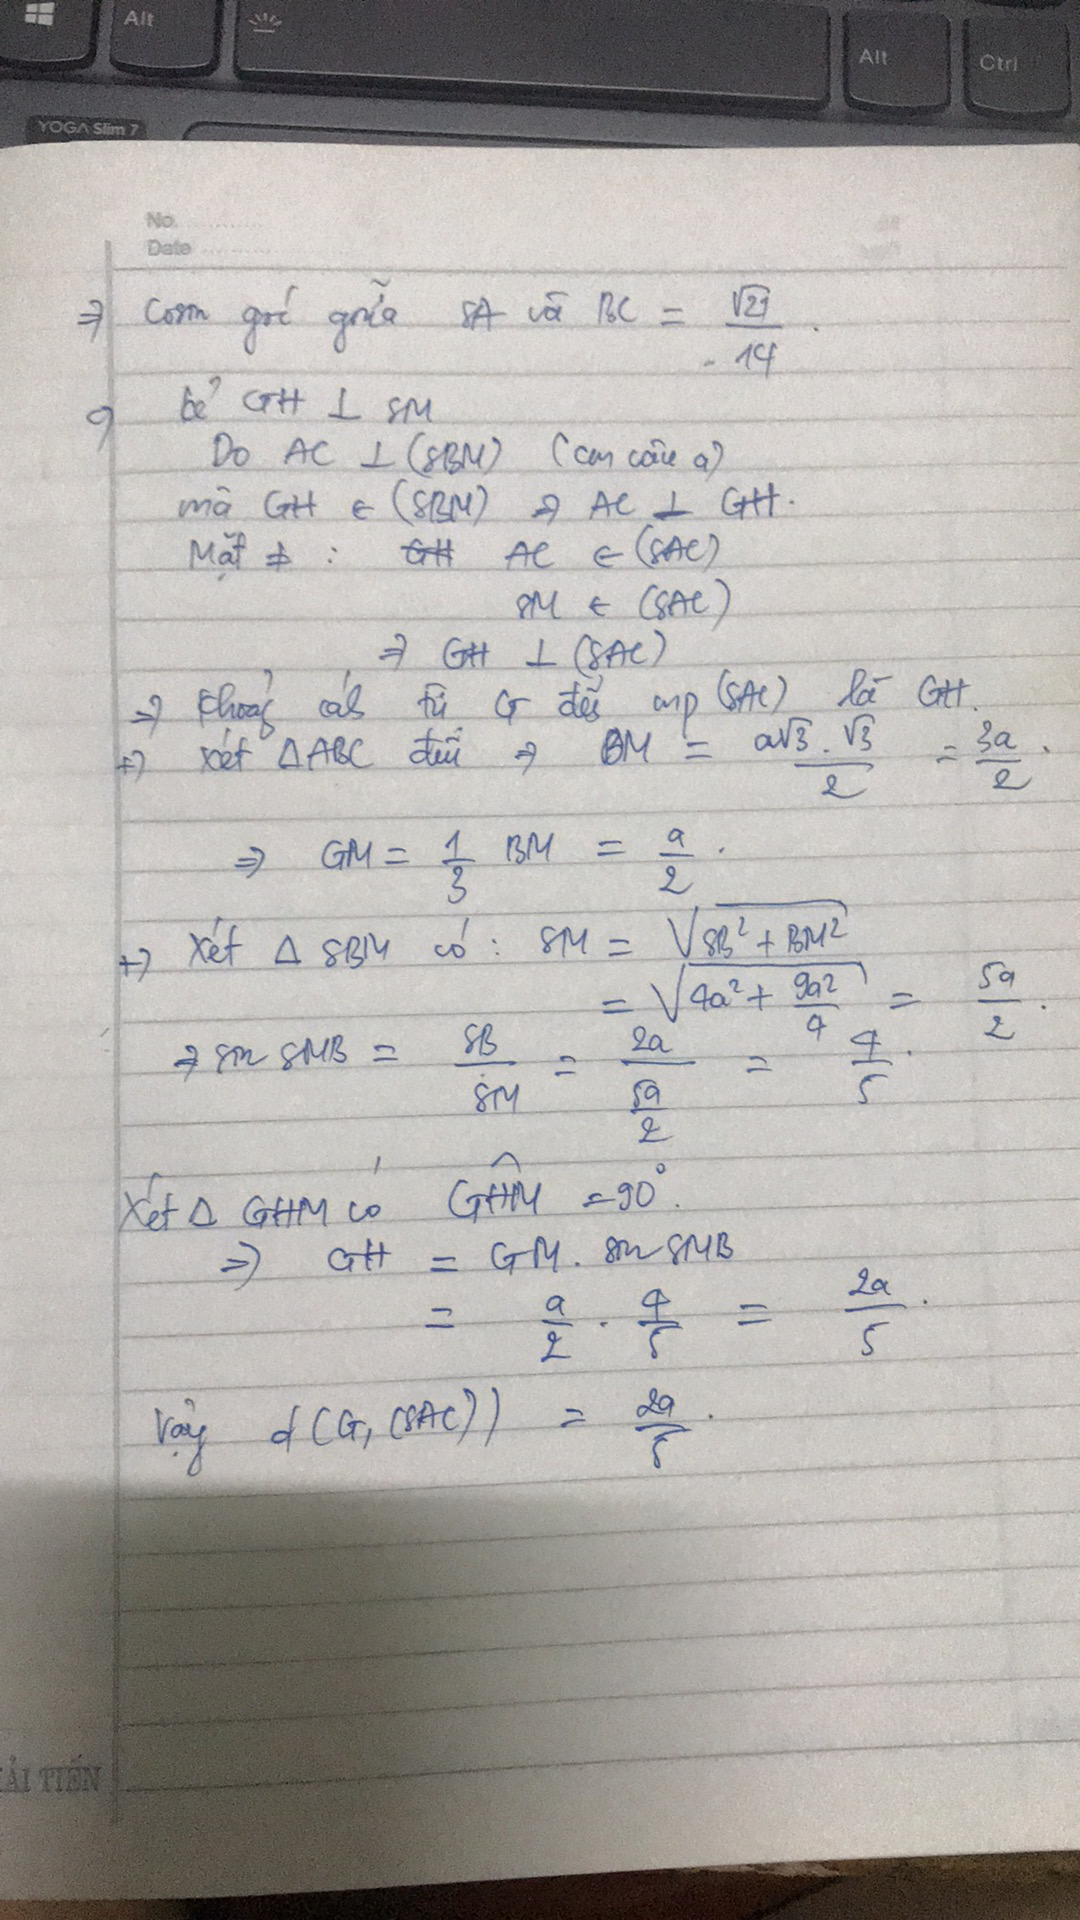 Alt
Alt
Ctrl
YOGA Slim 7
No.
Date
=> Cosin góc giữa SA và BC = √21/14.
c) kẻ GH ⊥ SM
Do AC ⊥ (SBM) (cm câu a)
mà GH ∈ (SBM) => AC ⊥ GH.
Mặt ≠ : AC ∈ (SAC)
SM ∈ (SAC)
=> GH ⊥ (SAC)
=> Khoảng cách từ G đến mp (SAC) là GH.
+) Xét ΔABC đều => BM = a√3.√3/2 = 3a/2.
=> GM = 1/3 BM = a/2.
+) Xét Δ SBM có: SM = √(SB² + BM²)
= √(4a² + 9a²/4) = 5a/2.
=> sin SMB = SB/SM = 2a/(5a/2) = 4/5.
Xét Δ GHM có GĤM = 90°.
=> GH = GM. sin SMB
= a/2 . 4/5 = 2a/5.
Vậy d(G, (SAC)) = 2a/5.
ẢI TIẾN